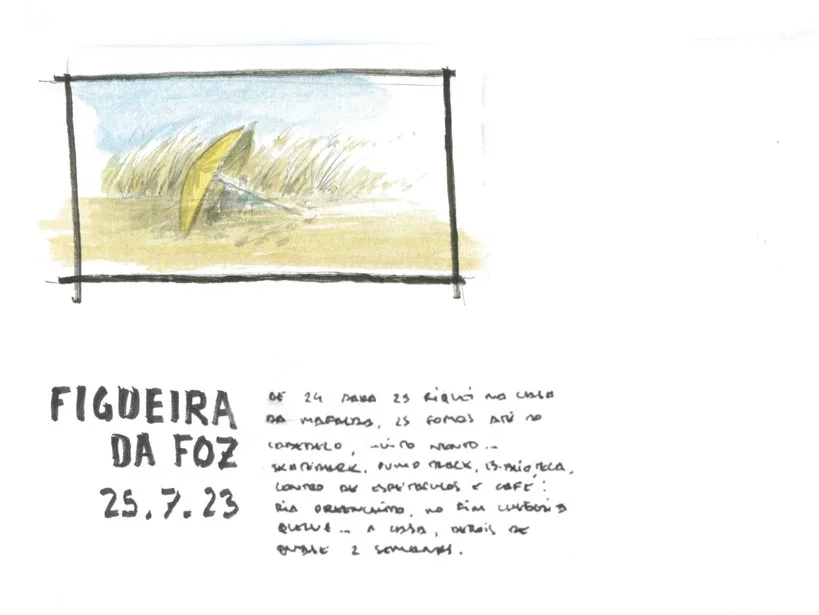 FIGUEIRA
DA FOZ
25.7.23
DE 24 PARA 25 FIQUEI NA CASA
DA MAFALDA, 25 FOMOS ATÉ AO
CABEDELO, MUITO VENTO...
SKATEPARK, PUMP TRACK, BIBLIOTECA,
CENTRO DE ESPETÁCULOS E CAFÉ!
DIA NO FIM
QUELUZ... A CASA, DEPOIS DE
QUASE 2 SEMANAS.